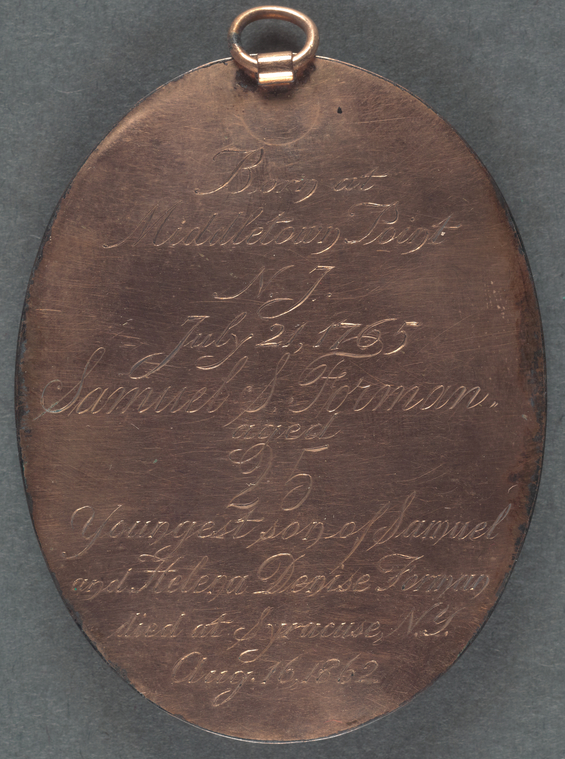 Born at
Middletown Point
N. J.
July 21, 1765
Samuel S. Forman.
aged
25
Youngest son of Samuel
and Helena Denise Forman
died at Syracuse, N.Y.
Aug. 16. 1862